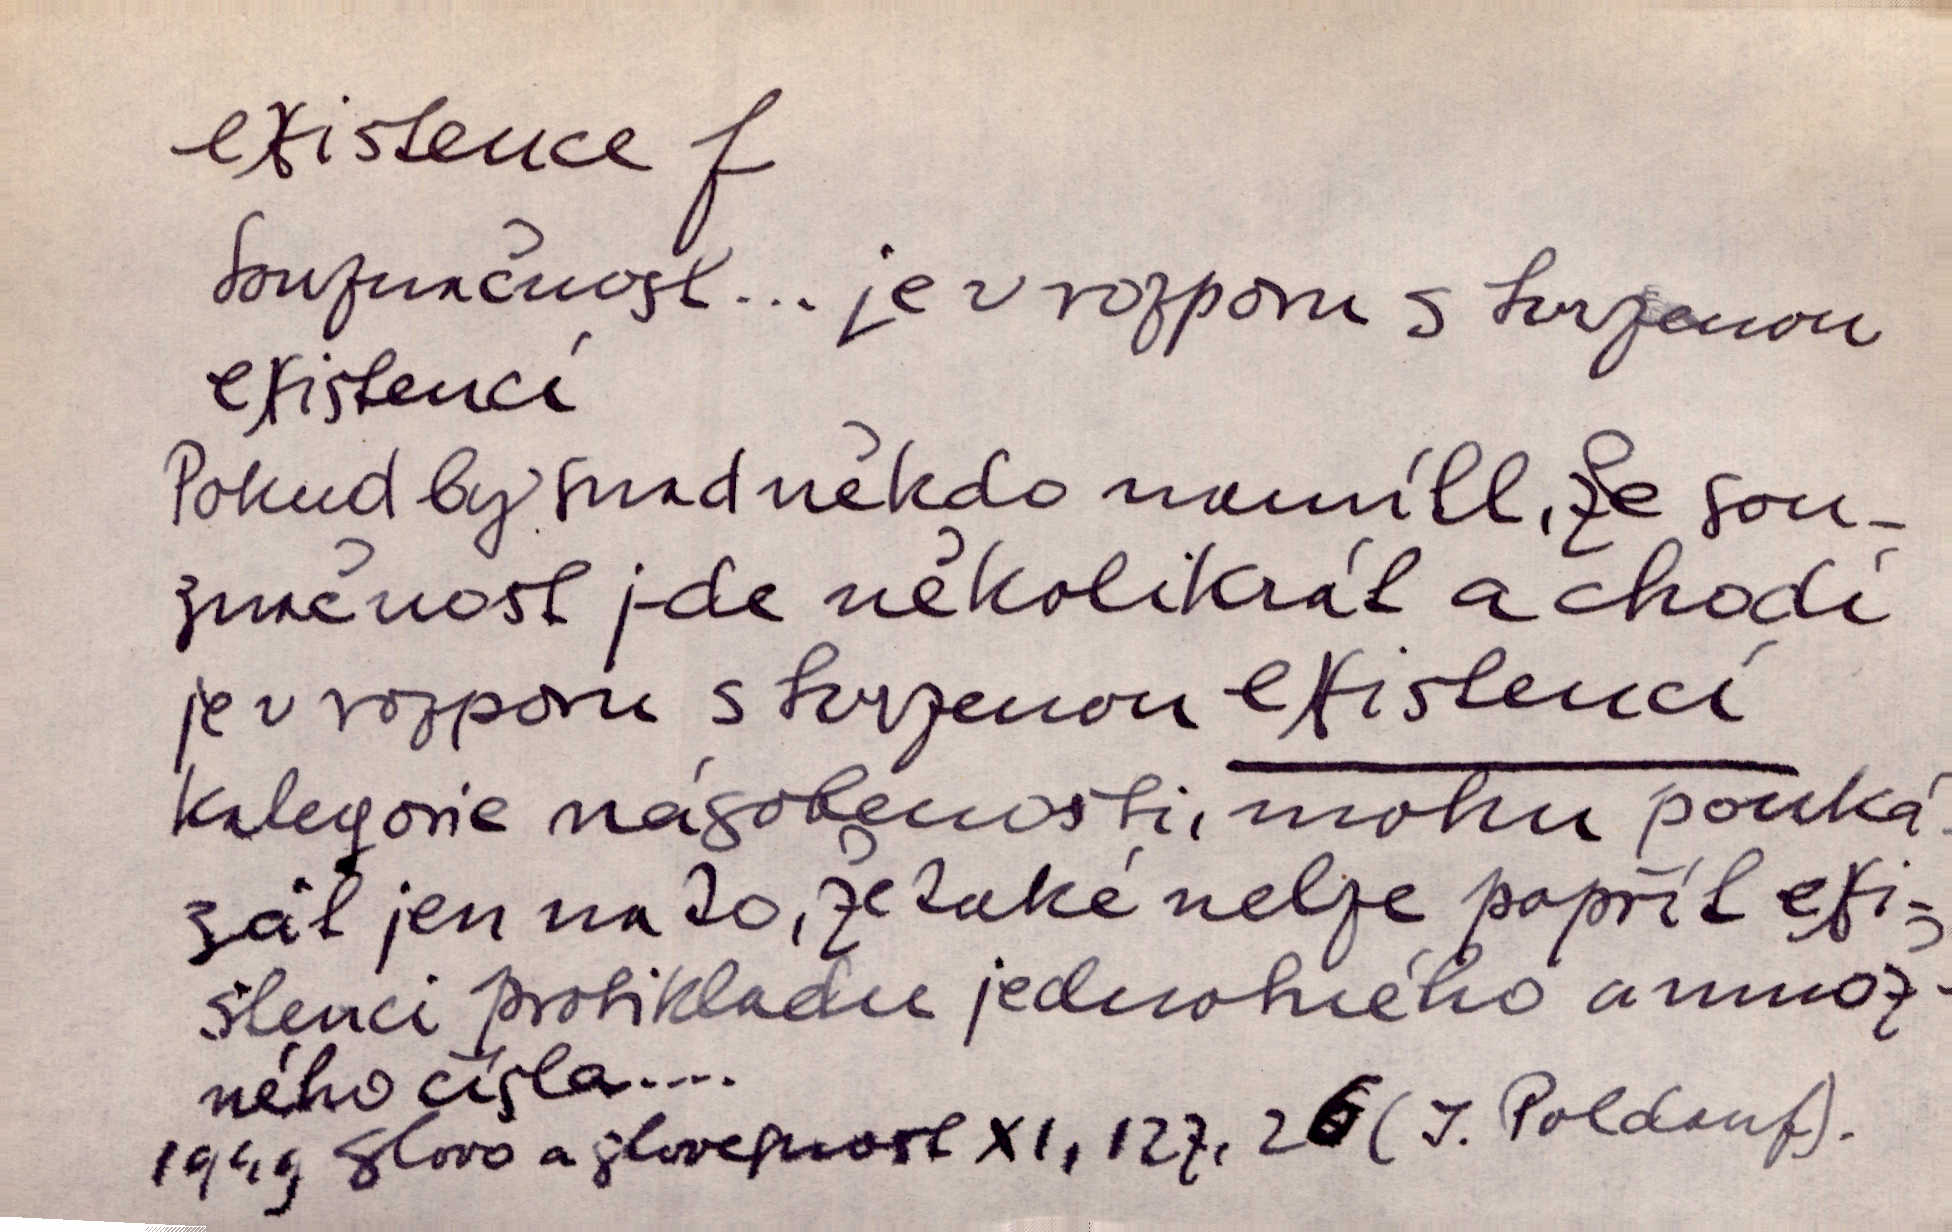 existence f
Souznačnost... je v rozporu s tvrzenou
existencí
Pokud by snad někdo namítl, že sou-
značnost jde několikrát a chodí
je v rozporu s tvrzenou existencí
kategorie násobenosti, mohu pouká-
zat jen na to, že také nelze popřít exi-
stenci protikladu jednotného a množ-
ného čísla....
1949 Slovo a slovesnost XI, 127, 26 (I. Poldauf).